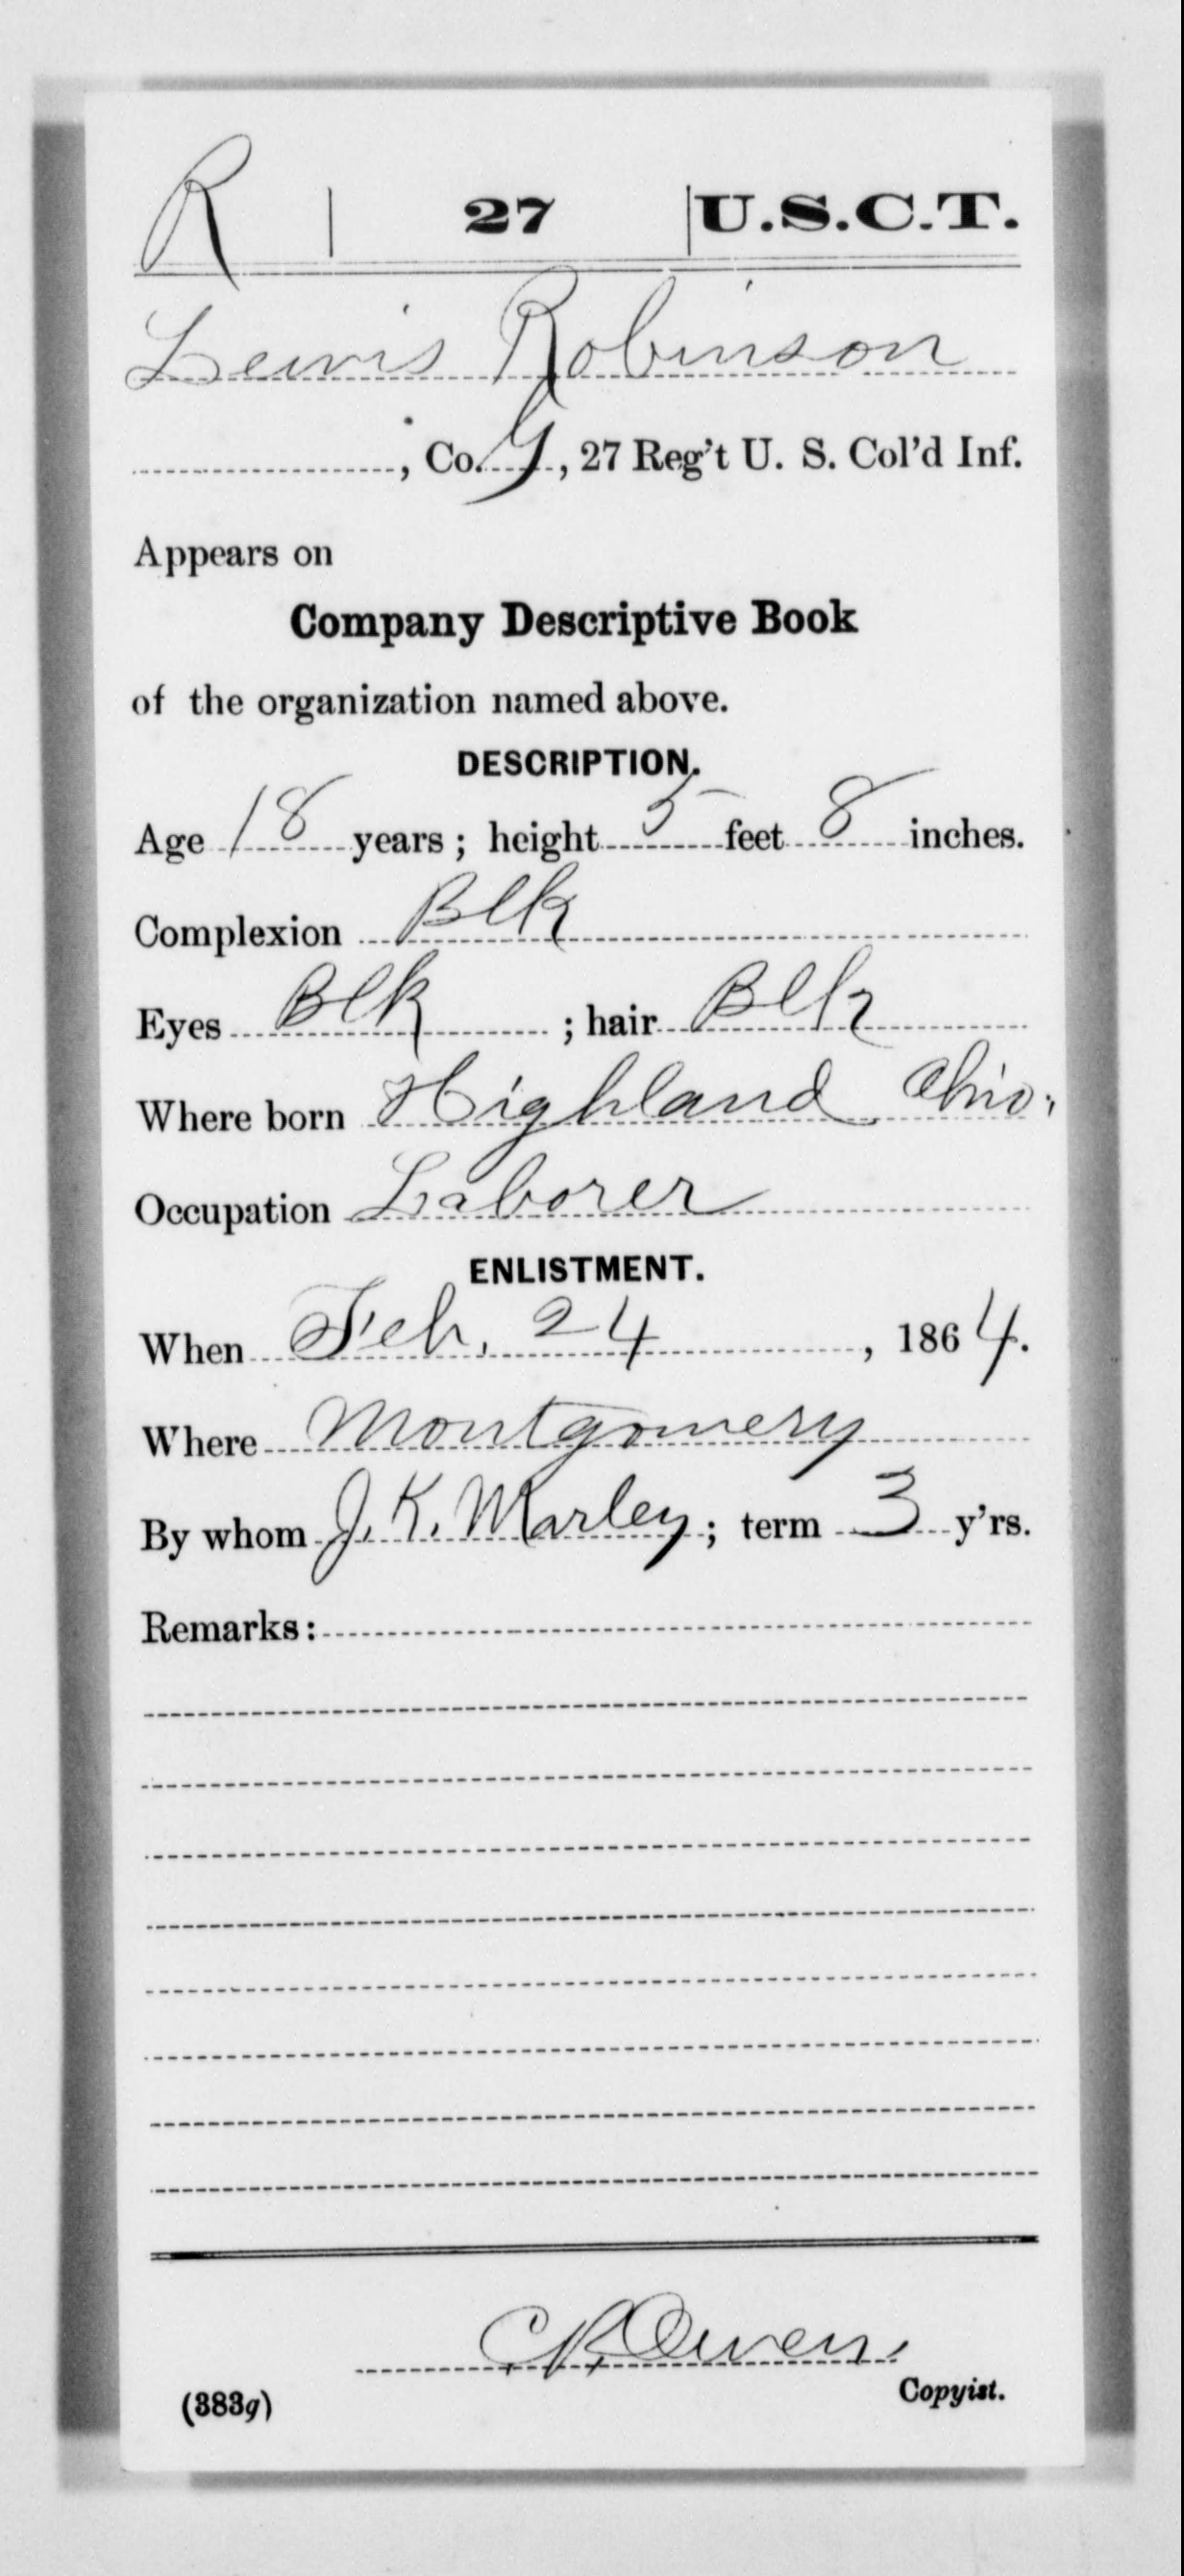 R | 27 | U.S.C.T.
Lewis Robinson
, Co. G, 27 Reg't U. S. Col'd Inf.
Appears on
Company Descriptive Book
of the organization named above.
DESCRIPTION.
Age 18 years; height 5 feet 8 inches.
Complexion Blk
Eyes Blk ; hair Blk
Where born Highland Ohio.
Occupation Laborer
ENLISTMENT.
When Feb. 24, 1864.
Where Montgomery
By whom J. K. Marley; term 3 y'rs.
Remarks:
C R Owen,
(383g) Copyist.